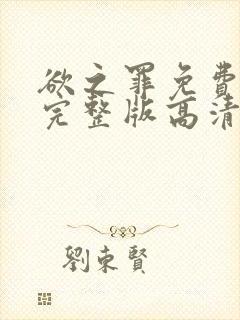 欲之罪免費
完整版高清
劉東賢